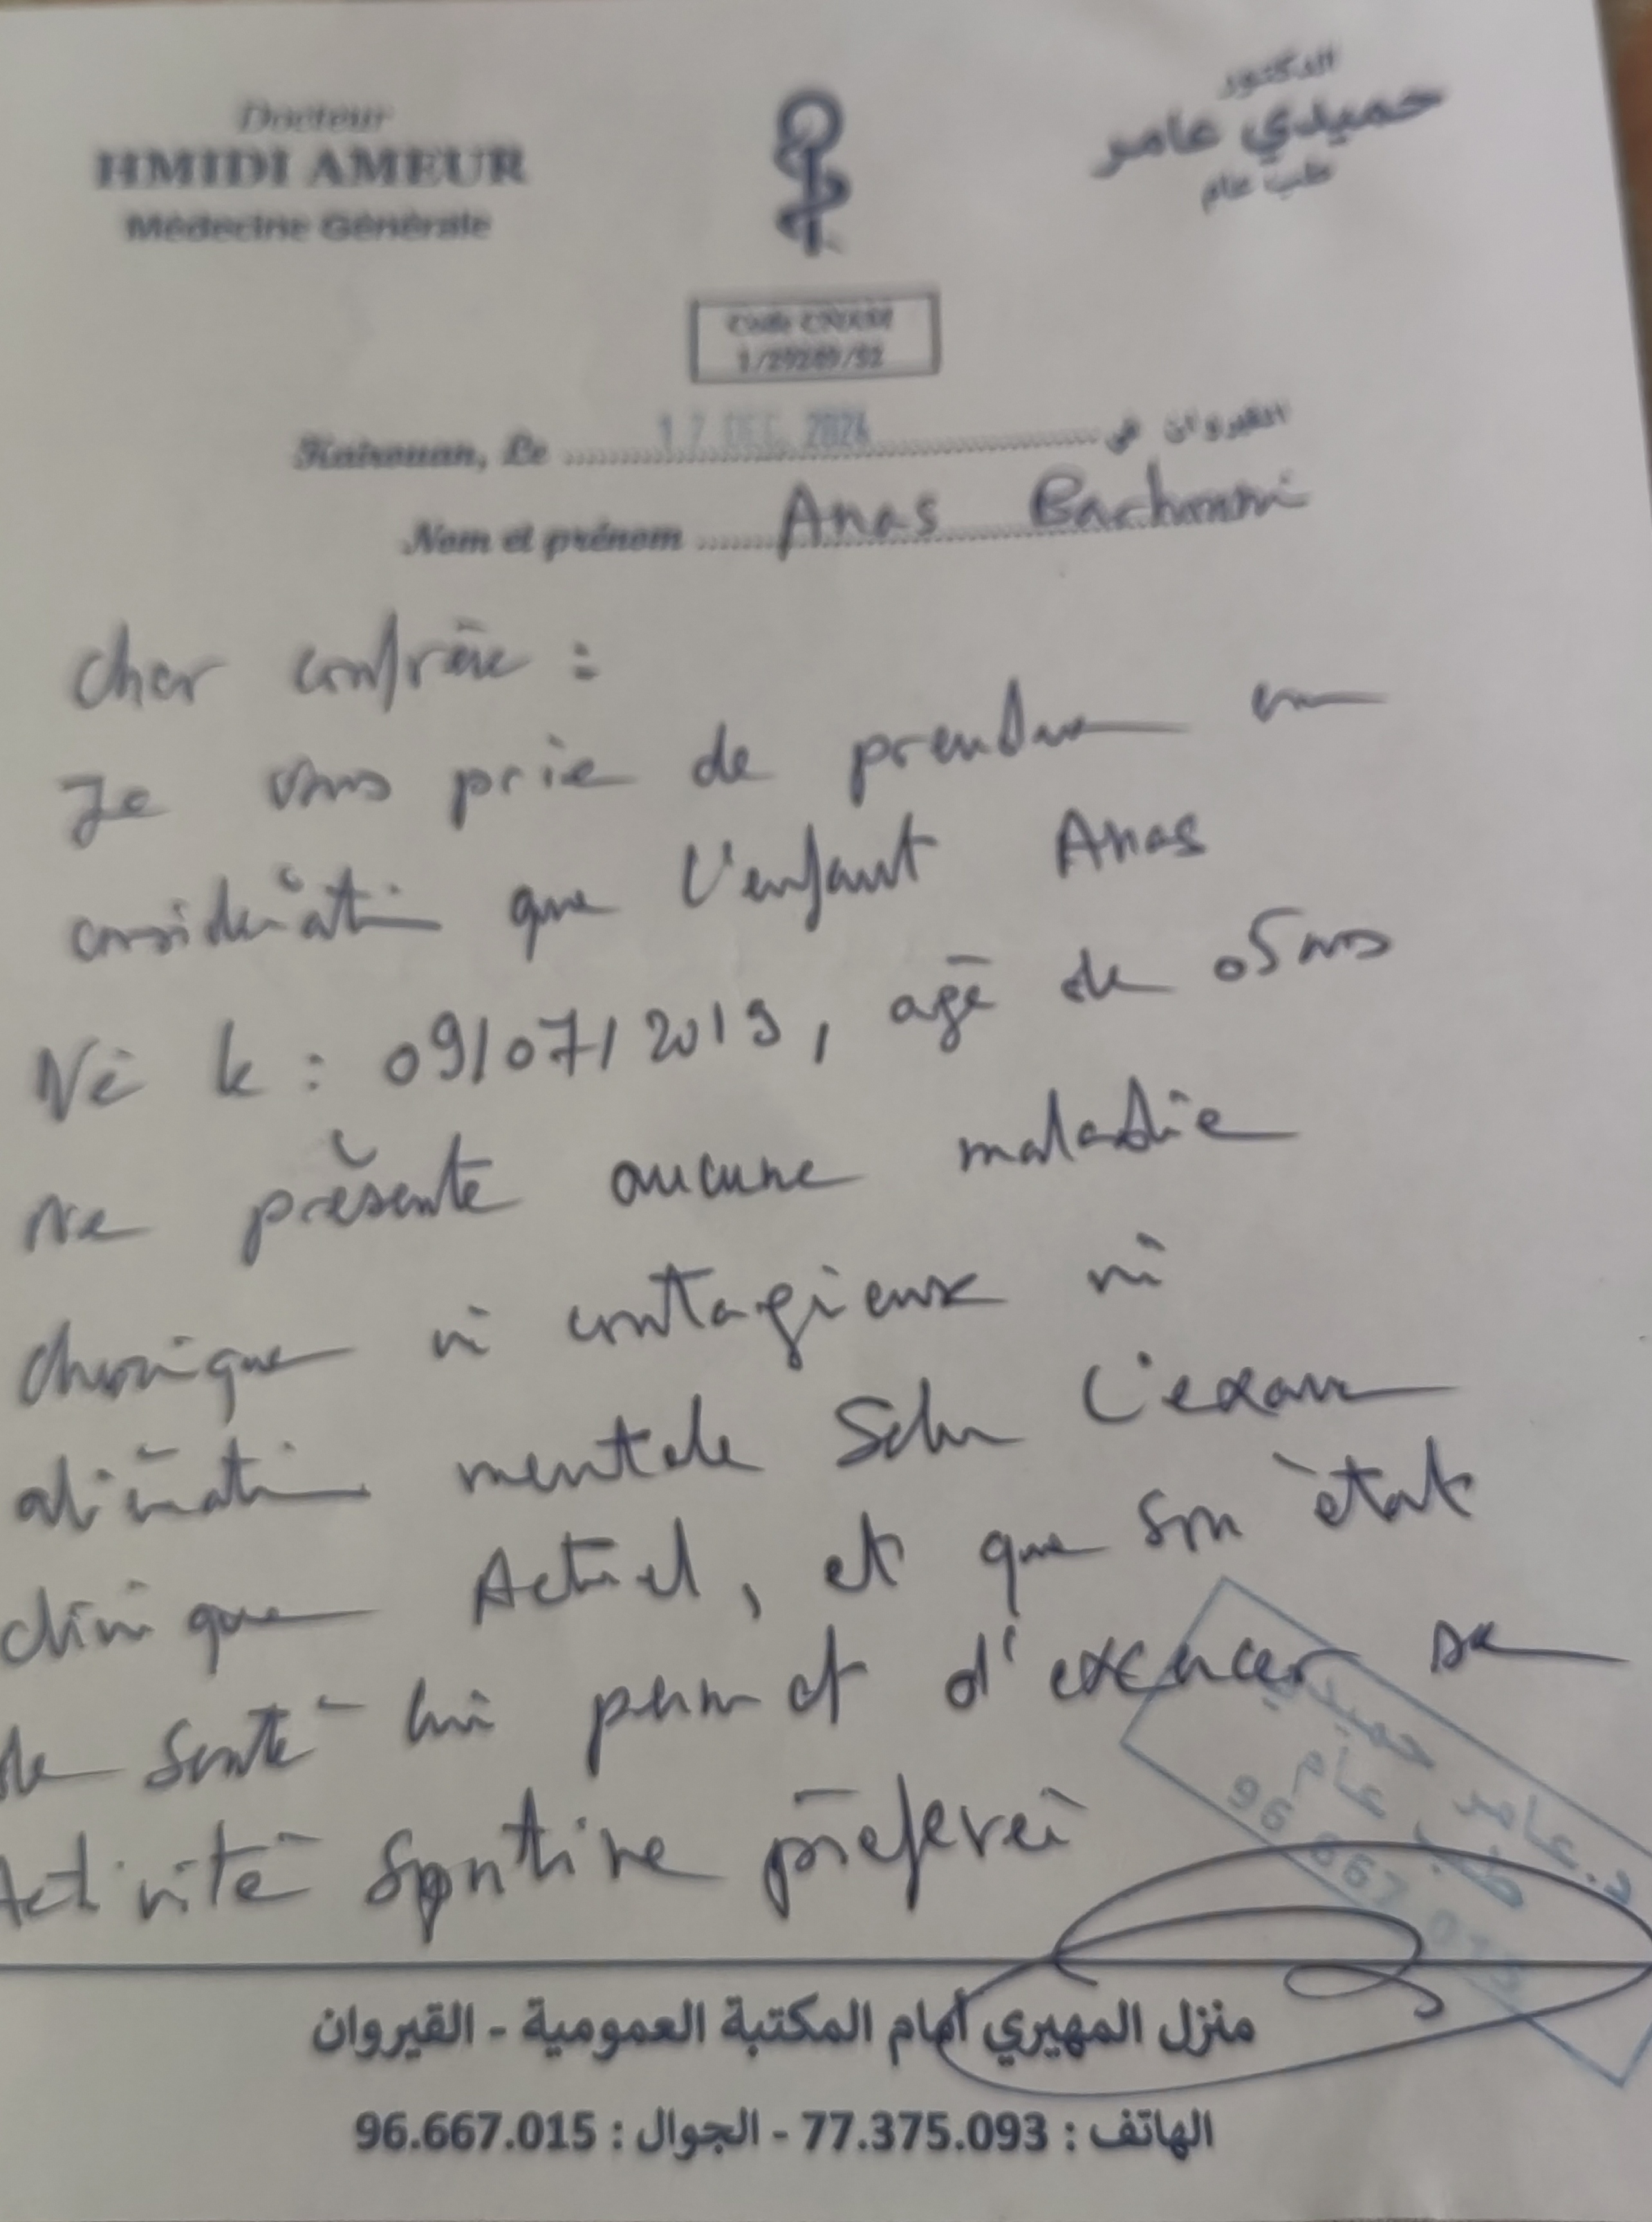 Docteur
HMIDI AMEUR
Médecine Générale
الدكتور
حميدي عامر
طب عام
Code CNAM
1/29289/92
Kairouan, Le 17 DEC. 2024 القيروان في
Nom et prénom Anas
Cher confrère :
Je vous prie de prendre en
considération que l'enfant Anas
Né le : 09/07/2019, agé de 05 ans
ne présente aucune maladie
chronique ni contagieux ni
aliénation mentale Selon l'examen
clinique Actuel, et que son état
de santé lui permet d'exercer sa
Activité Sportive préféreé
د. عامر حميدي
طب عام
96 667 015
منزل المهيري أمام المكتبة العمومية - القيروان
الهاتف : 77.375.093 - الجوال : 96.667.015